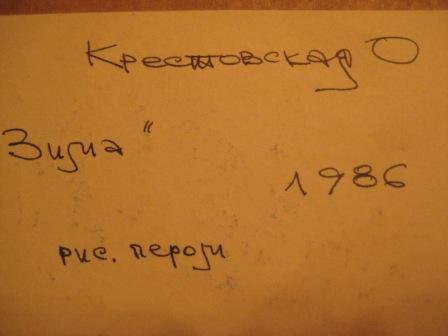 Крестовская О
Зима"
1986
рис. пером